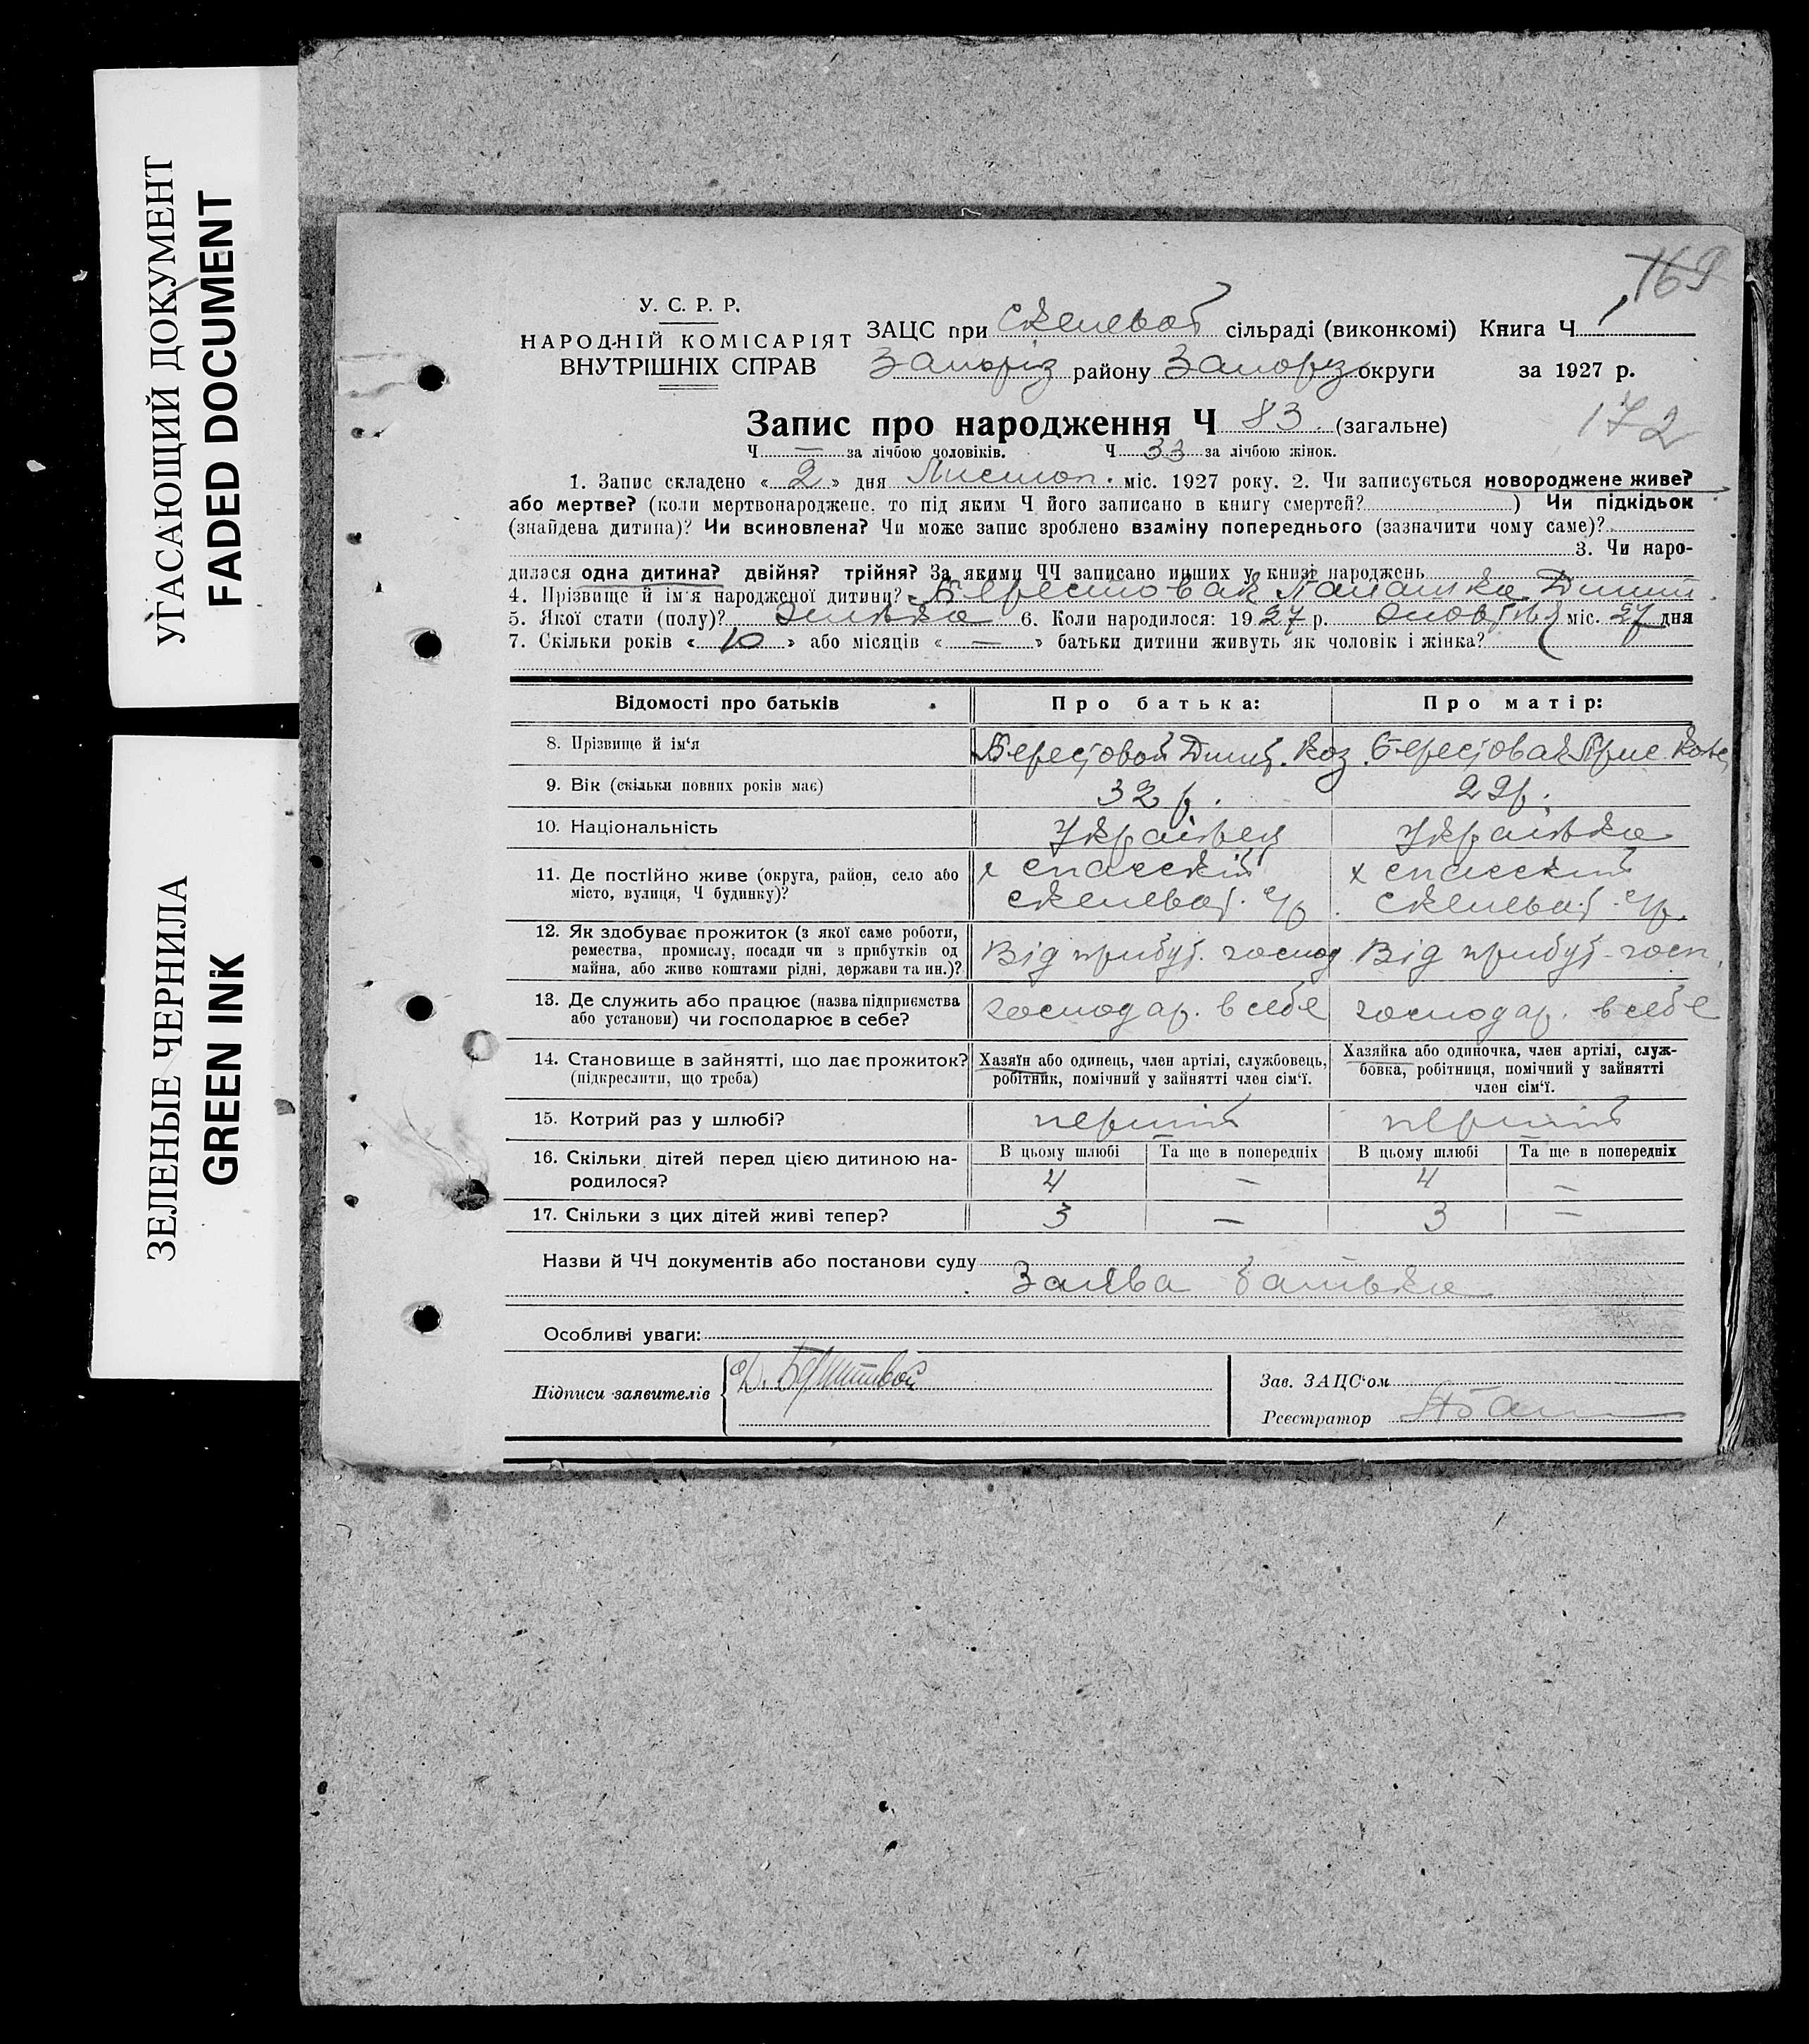 УГАСАЮЩИЙ ДОКУМЕНТ
FADED DOCUMENT
ЗЕЛЕНЫЕ ЧЕРНИЛА
GREEN INK
169
У. С. Р. Р.
НАРОДНІЙ КОМІСАРІЯТ
ВНУТРІШНІХ СПРАВ
ЗАЦС при Скельоват сільраді (виконкомі) Книга Ч 1
Запоріз району Запорз округи за 1927 р.
Запис про народження Ч 83. (загальне)
172
Ч — за лічбою чоловіків. Ч 33 за лічбою жінок.
1. Запис складено « 2 » дня Листоп. міс. 1927 року. 2. Чи записується новороджене живе?
або мертве? (коли мертвонароджене, то під яким Ч його записано в книгу смертей? ) Чи підкідьок
(знайдена дитина)? Чи всиновлена? Чи може запис зроблено взаміну попереднього (зазначити чому саме)?
3. Чи наро-
дилася одна дитина? двійня? трійня? За якими ЧЧ записано инших у книзі народжень
4. Прізвище й ім'я народженої дитини? Берестовая Палашка Дмит.
5. Якої стати (полу)? жінка 6. Коли народилося: 1927 р. міс. 27 дня
7. Скільки років « 10 » або місяців « — » батьки дитини живуть як чоловік і жінка?
Відомості про батьків Про батька: Про матір:
8. Прізвище й ім'я Берестовой Дмит. Коз. Берестовая
9. Вік (скільки повних років має) 32 р. 29 р.
10. Національність Українец Українка
11. Де постійно живе (округа, район, село або х Спасскій х Спасский
місто, вулиця, Ч будинку)? Скельоват. с/р. Скельоват. с/р.
12. Як здобуває прожиток (з якої саме роботи,
ремества, промислу, посади чи з прибутків од Від прибут. господ Від прибут. госп.
майна, або живе коштами рідні, держави та ин.)?
13. Де служить або працює (назва підприємства господар. в себе господар. в себе
або установи) чи господарює в себе?
14. Становище в зайнятті, що дає прожиток? Хазяїн або одинець, член артілі, службовець, Хазяйка або одиночка, член артілі, служ-
(підкреслити, що треба) робітник, помічний у зайнятті член сім'ї. бовка, робітниця, помічний у зайнятті
член сім'ї.
15. Котрий раз у шлюбі? перший перший
16. Скільки дітей перед цією дитиною на- В цьому шлюбі Та ще в попередніх В цьому шлюбі Та ще в попередніх
родилося? 4 — 4 —
17. Скільки з цих дітей живі тепер? 3 — 3 —
Назви й ЧЧ документів або постанови суду
Заява батька
Особливі уваги:
Підписи заявителів Д. Берестовой
Зав. ЗАЦС'ом
Реєстратор